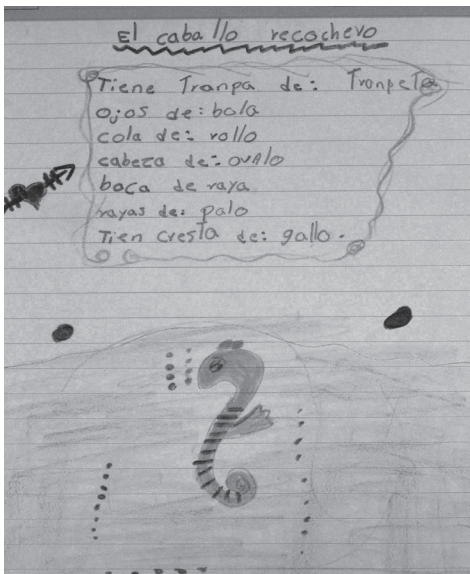 El caballo recochero
Tiene Tranpa de: Tronpeta
ojos de: bola
cola de: rollo
cabeza de: ovalo
boca de raya
rayas de: palo
Tien cresta de: gallo.